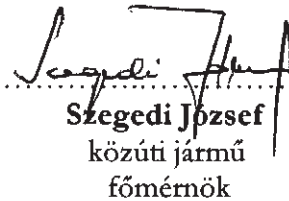 Szegedi József
Szegedi József
közúti jármű
főmérnök